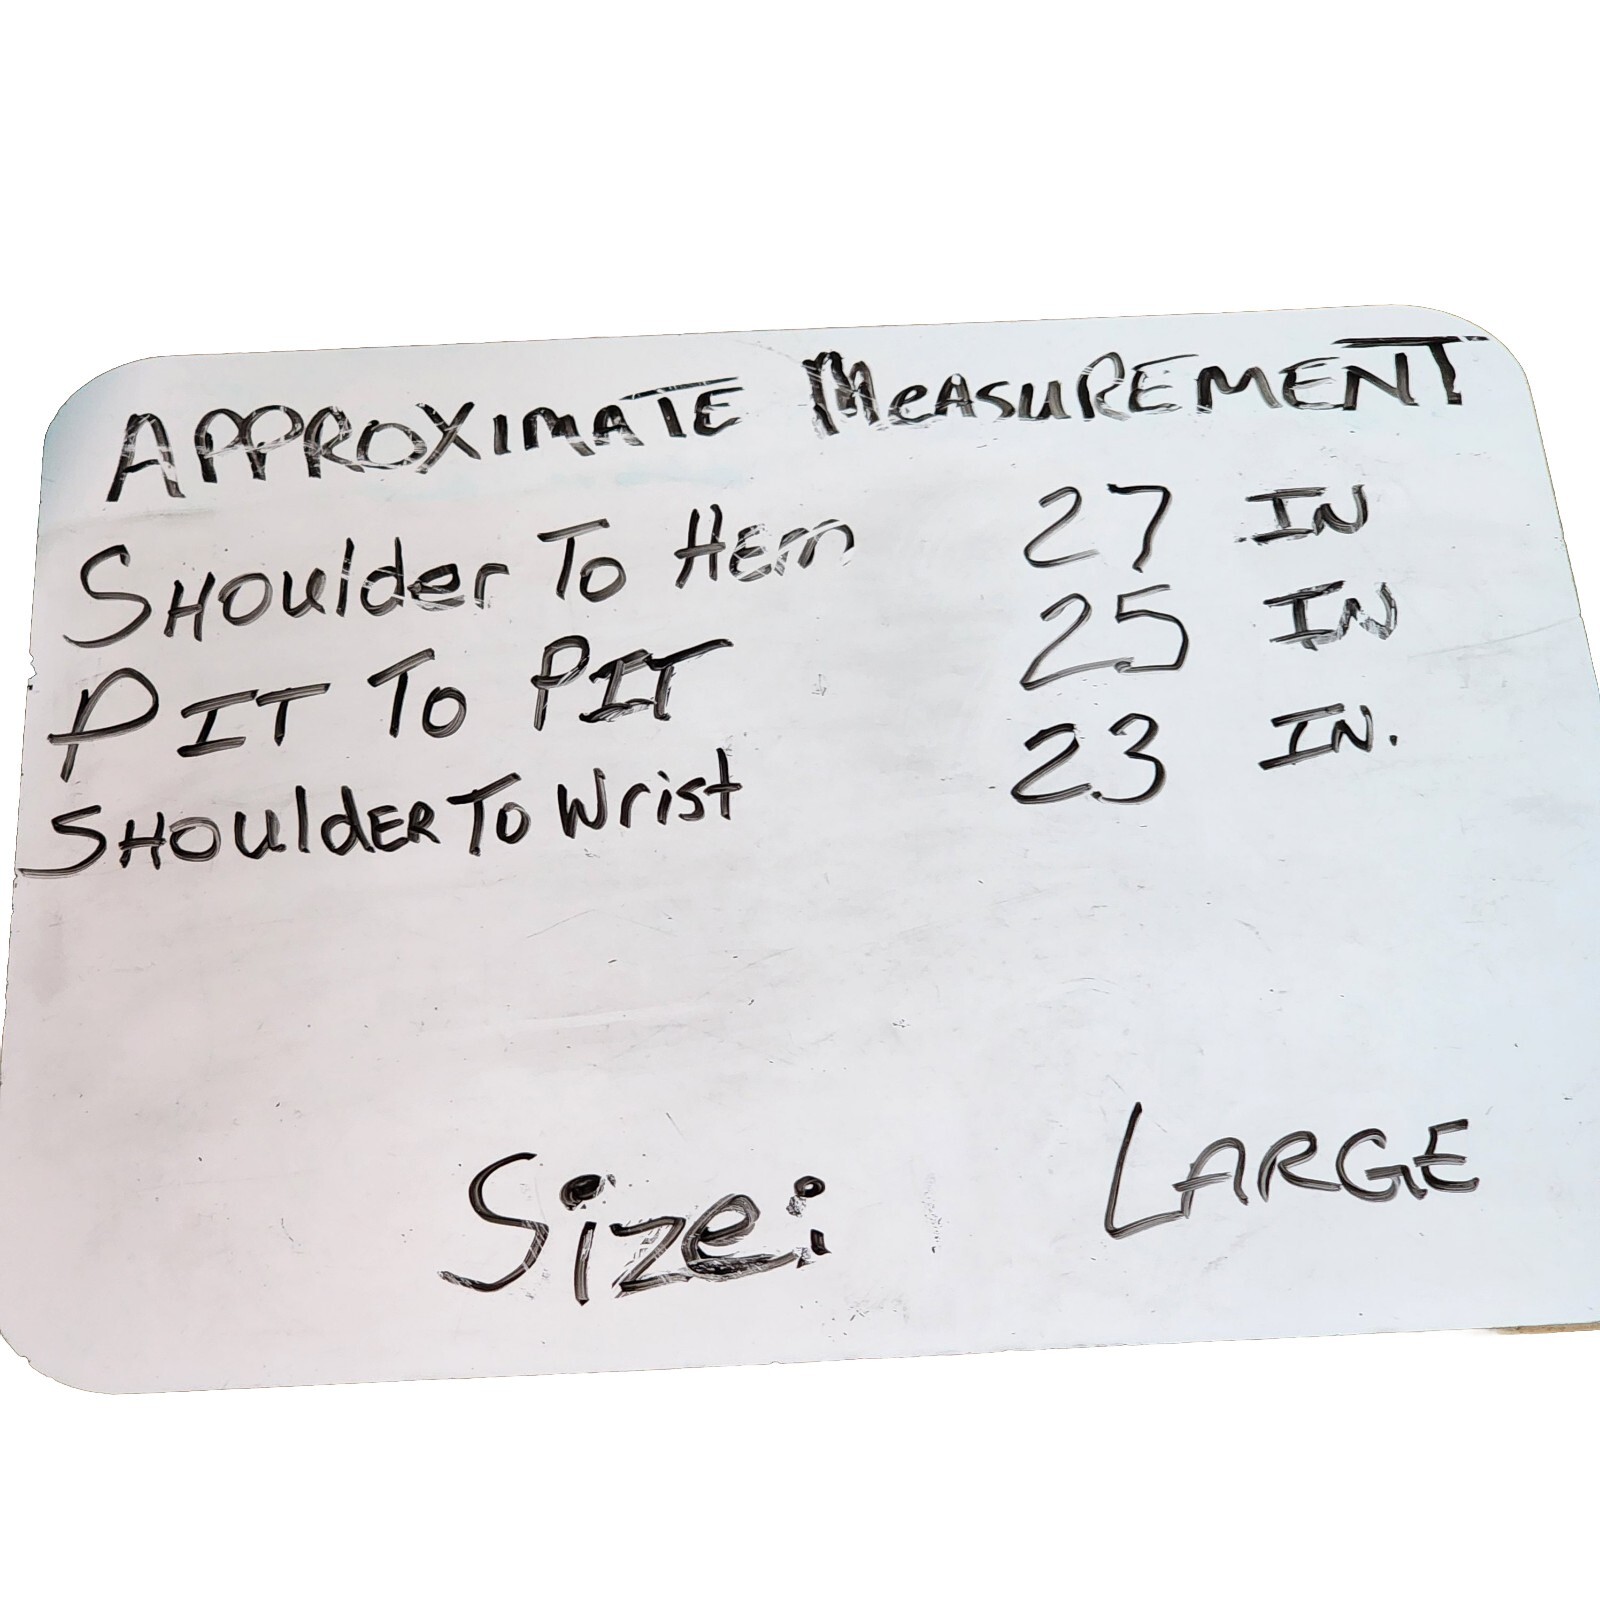 APPROXIMATE MeASUREMENT
SHOulder To HEm 27 IN
PIT To PIT 25 IN
SHOulDER To Wrist 23 IN.
Size: LARGE